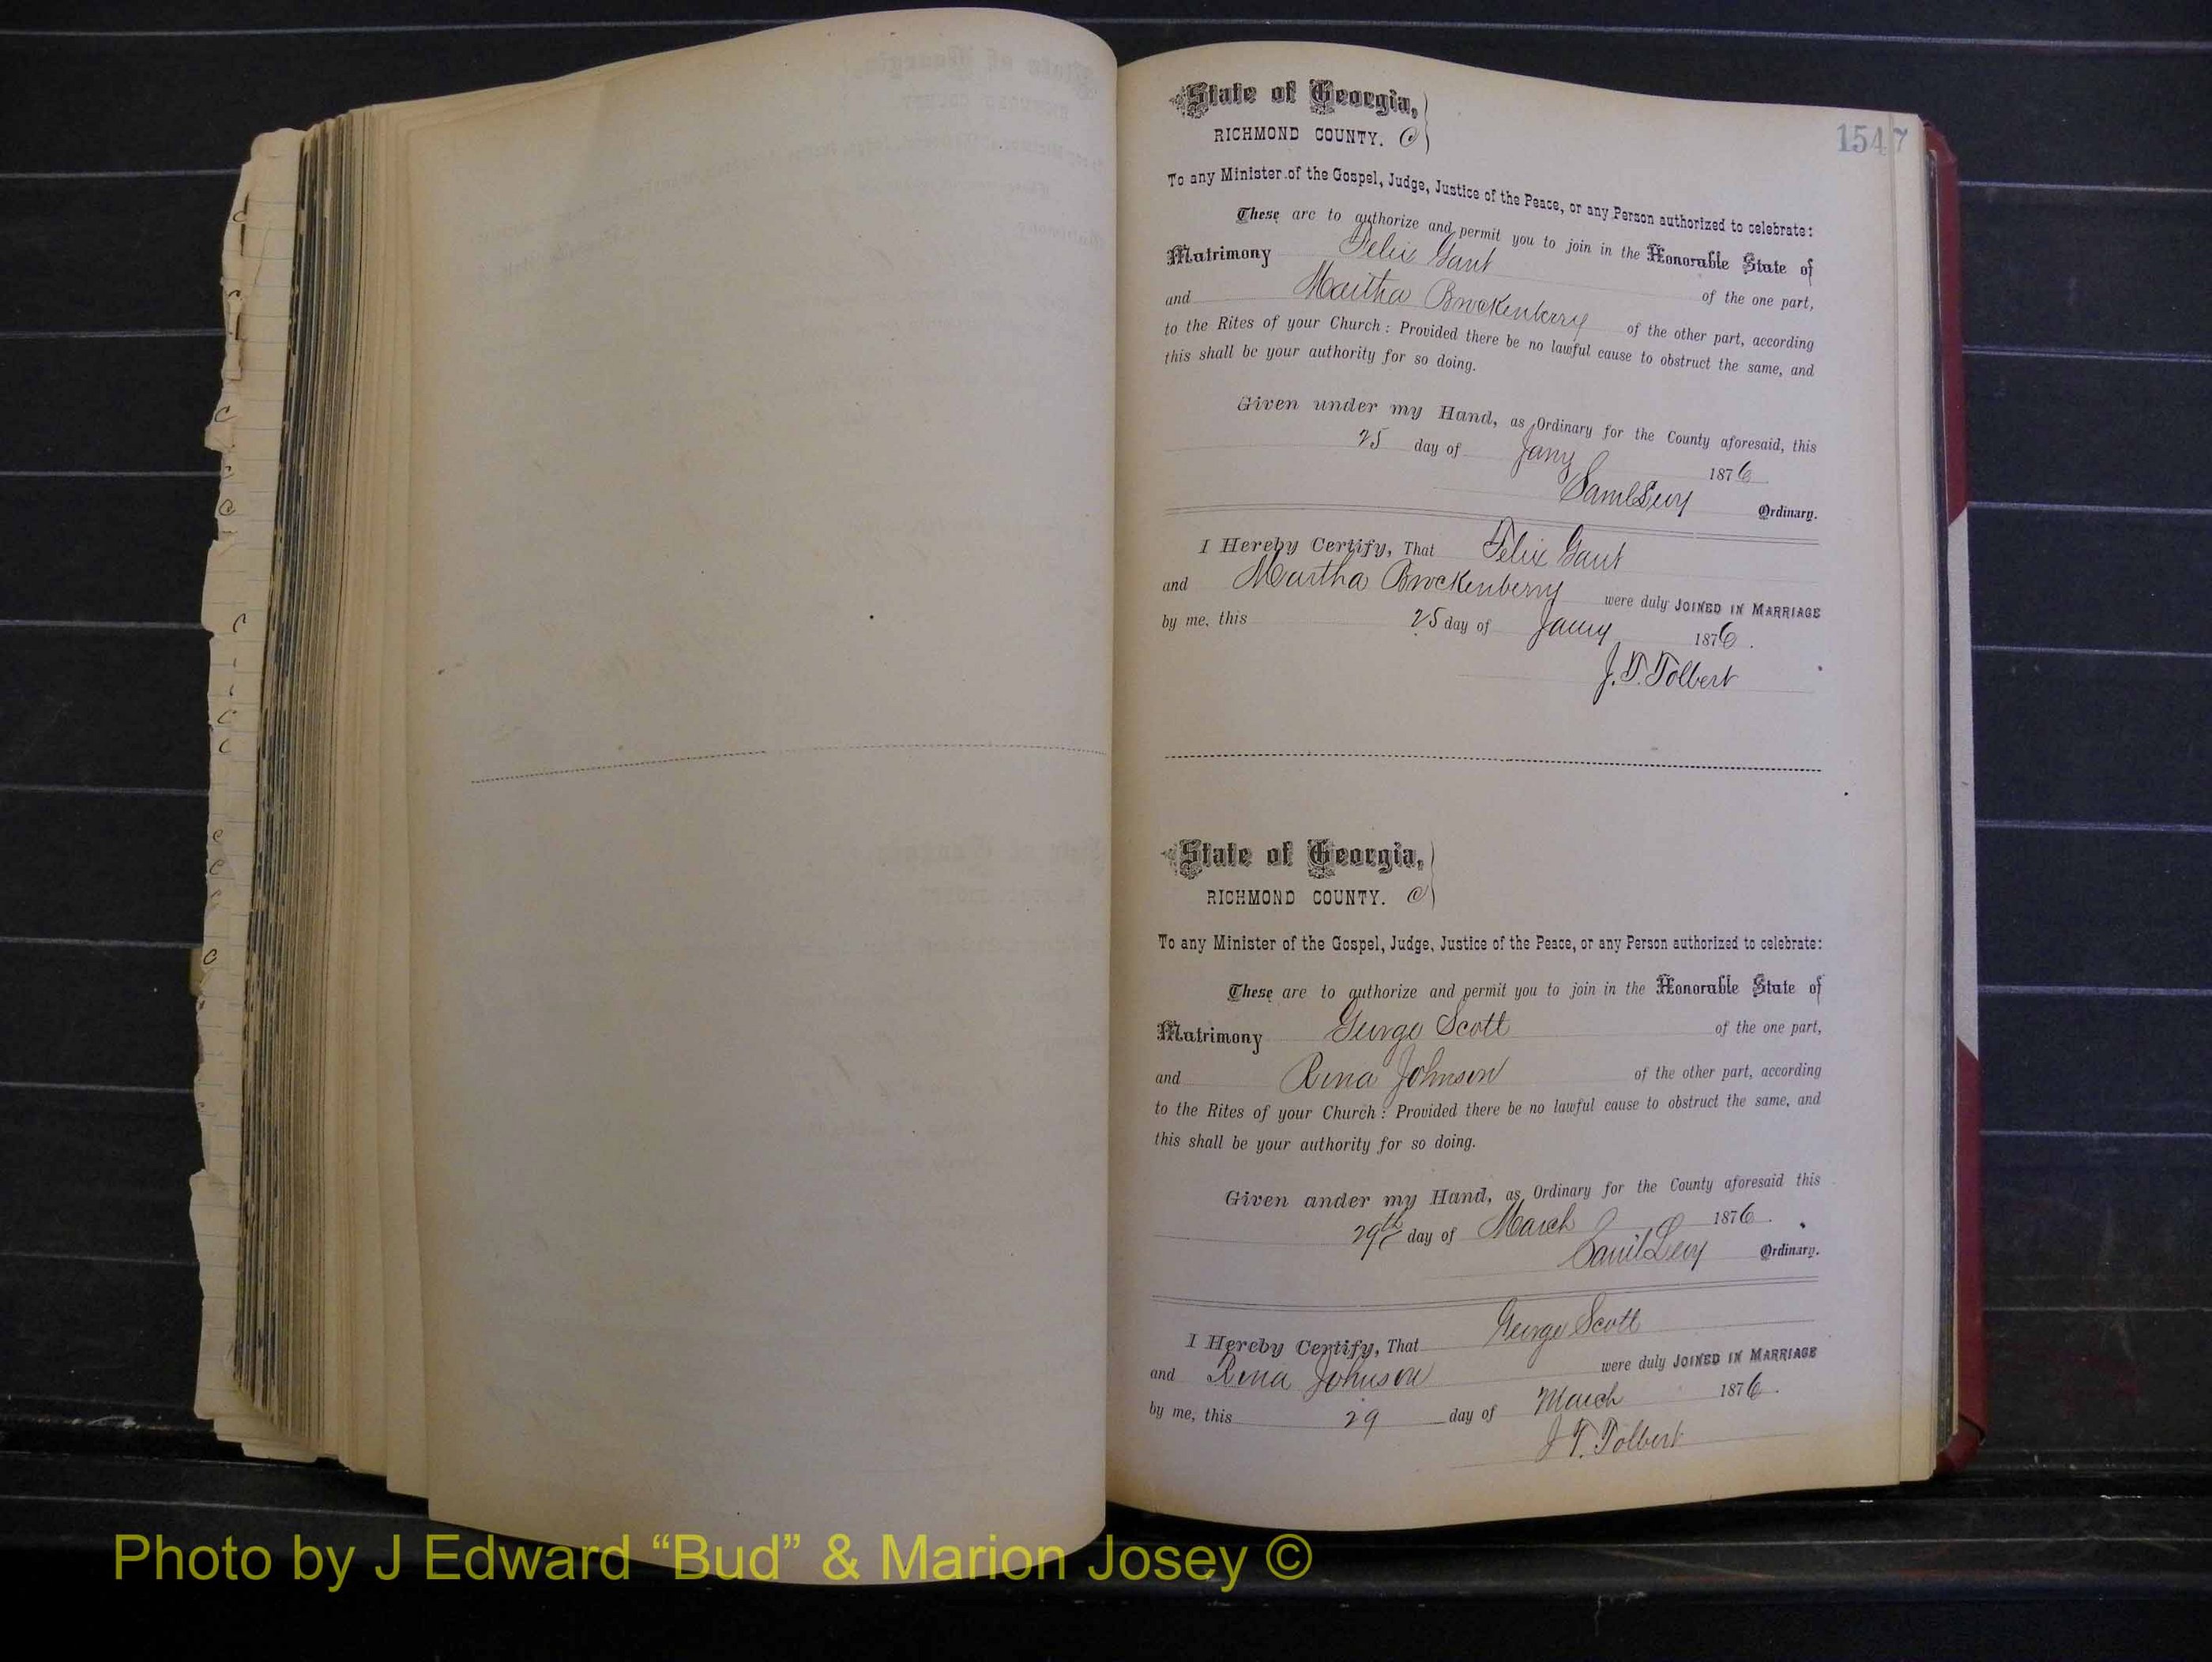 State of Georgia,
RICHMOND COUNTY. C
1547
To any Minister of the Gospel, Judge, Justice of the Peace, or any Person authorized to celebrate:
These are to authorize and permit you to join in the Honorable State of
Matrimony Felix Gant of the one part,
and Martha Brockenberry of the other part, according
to the Rites of your Church: Provided there be no lawful cause to obstruct the same, and
this shall be your authority for so doing.
Given under my Hand, as Ordinary for the County aforesaid, this
25 day of Jany 1876
Saml Levy Ordinary.
I Hereby Certify, That Felix Gant
and Martha Brockenberry were duly JOINED IN MARRIAGE
by me, this 25 day of Jany 1876.
J. T. Tolbert
State of Georgia,
RICHMOND COUNTY. C
To any Minister of the Gospel, Judge, Justice of the Peace, or any Person authorized to celebrate:
These are to authorize and permit you to join in the Honorable State of
Matrimony George Scott of the one part,
and Rena Johnson of the other part, according
to the Rites of your Church: Provided there be no lawful cause to obstruct the same, and
this shall be your authority for so doing.
Given under my Hand, as Ordinary for the County aforesaid this
29th day of March 1876.
Saml Levy Ordinary.
I Hereby Certify, That George Scott
and Rena Johnson were duly JOINED IN MARRIAGE
by me, this 29 day of March 1876.
J T. Tolbert
Photo by J Edward “Bud” & Marion Josey ©